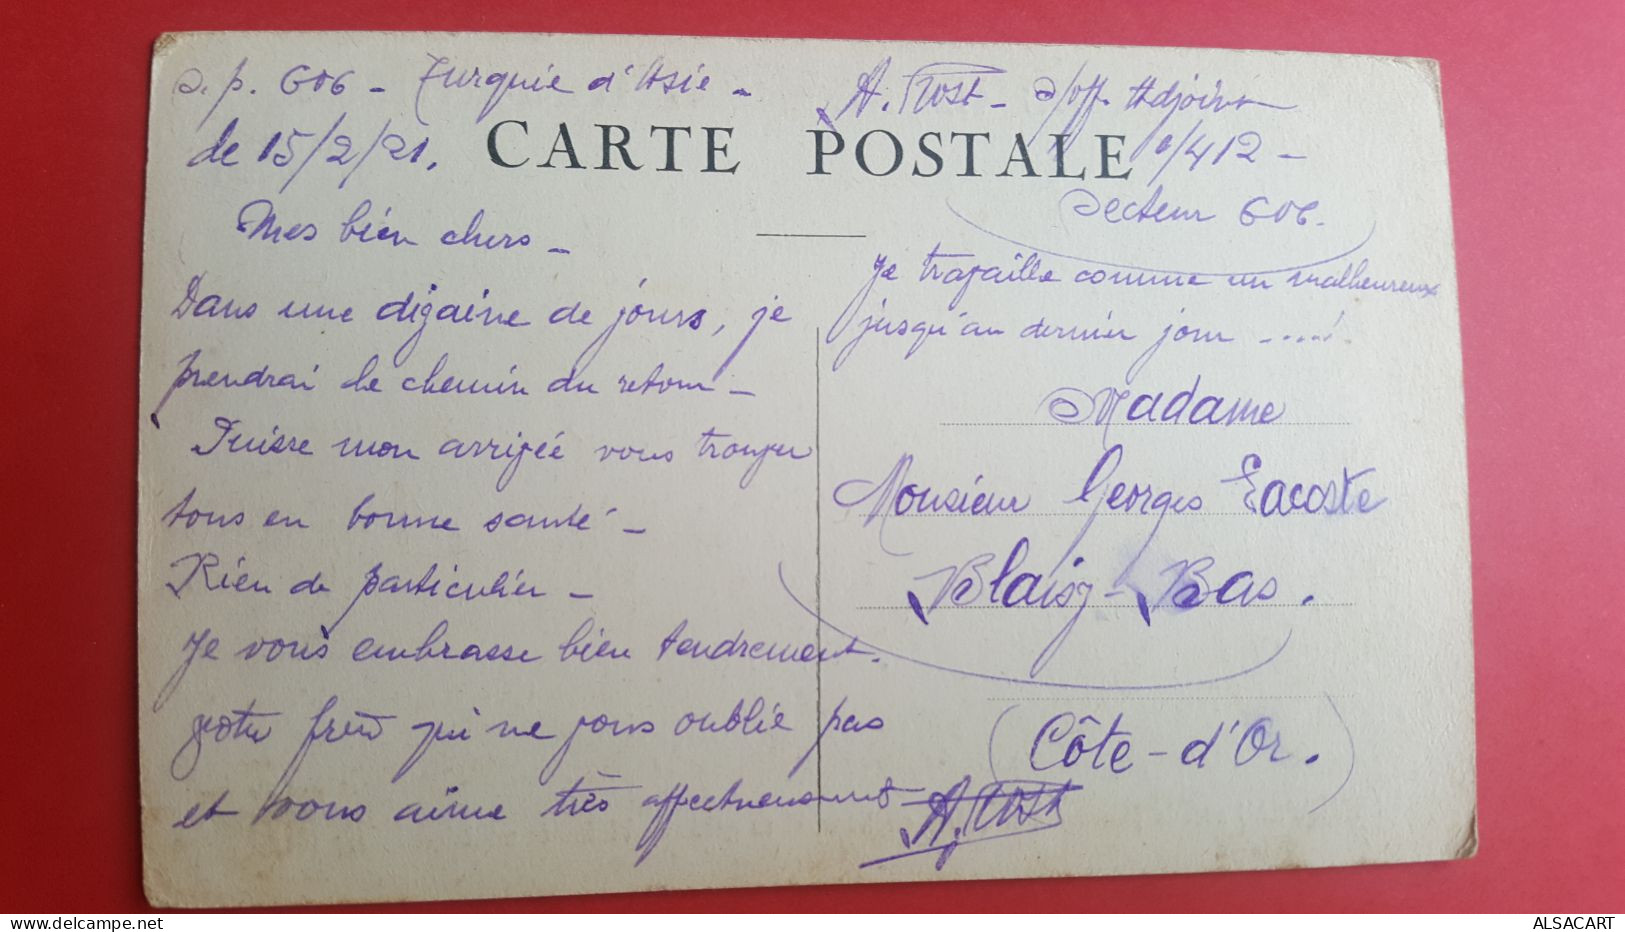 S.p. 606 - Turquie d'Asie -
le 15/2/21.
A. Rost - S/off. Adjoint
1/412 -
Secteur 606.
CARTE POSTALE
Mes bien chers -
Dans une dizaine de jours, je
prendrai le chemin du retour -
Puisse mon arrivée vous trouver
tous en bonne santé -
Rien de particulier -
Je vous embrasse bien tendrement.
Votre frère qui ne vous oublie pas
et vous aime très affectueusement
A. Rost
Je travaille comme un malheureux
jusqu'au dernier jour -....!
Madame
Monsieur Georges Lacoste
Blaisy-Bas.
(Côte-d'Or.)
ALSACART